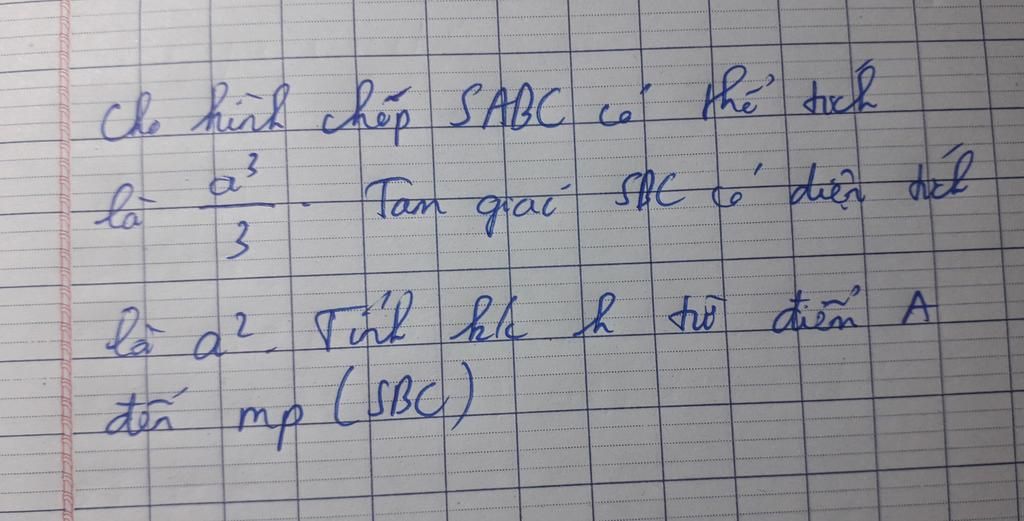 Cho hình chóp SABC có thể tích
là a³/3. Tam giác SBC có diện tích
là a². Tính k/c h từ điểm A
đến mp (SBC)